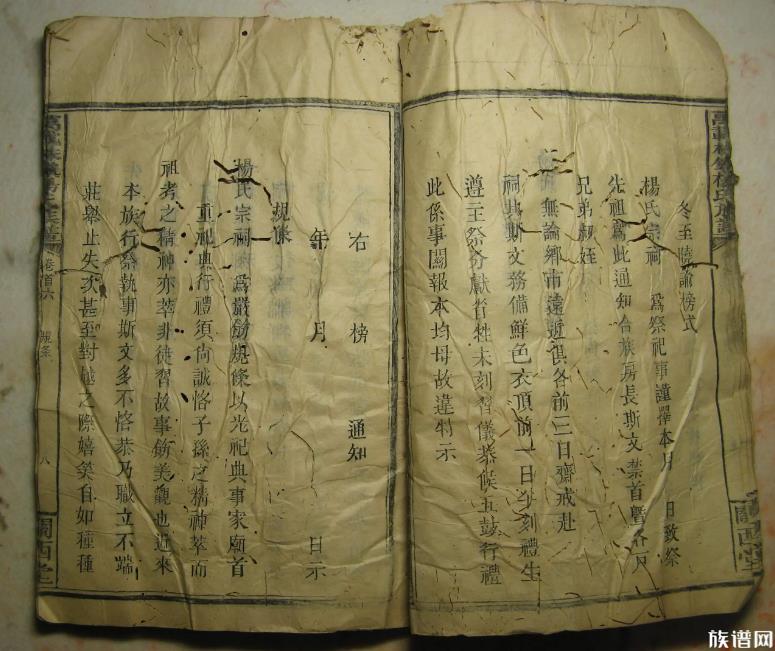 冬至曉諭榜式
楊氏宗祠 為祭祀事謹擇本月 日致祭
先祖為此通知合族房長斯文禁首暨各戶
兄弟叔姪
無論鄉市遠近俱各前三日齋戒赴
祠與斯文務備鮮色衣頂前一日 刻禮生
遵三主祭分獻省牲未刻習儀恭候五鼓行禮
此係事關報本均毋故違特示
關西堂
右 榜 通知
年 月 日示
規條
楊氏宗祠 為嚴飭規條以光祀典事家廟首
重祀典行禮須尚誠恪子孫之精神萃而
祖考之精神亦萃非徒習故事飾美觀也近來
本族行祭執事斯文多不恪恭乃職立不端
莊舉止失次甚至對越之際嬉笑自如種種
卷首六 規條
八
關西堂
族谱网